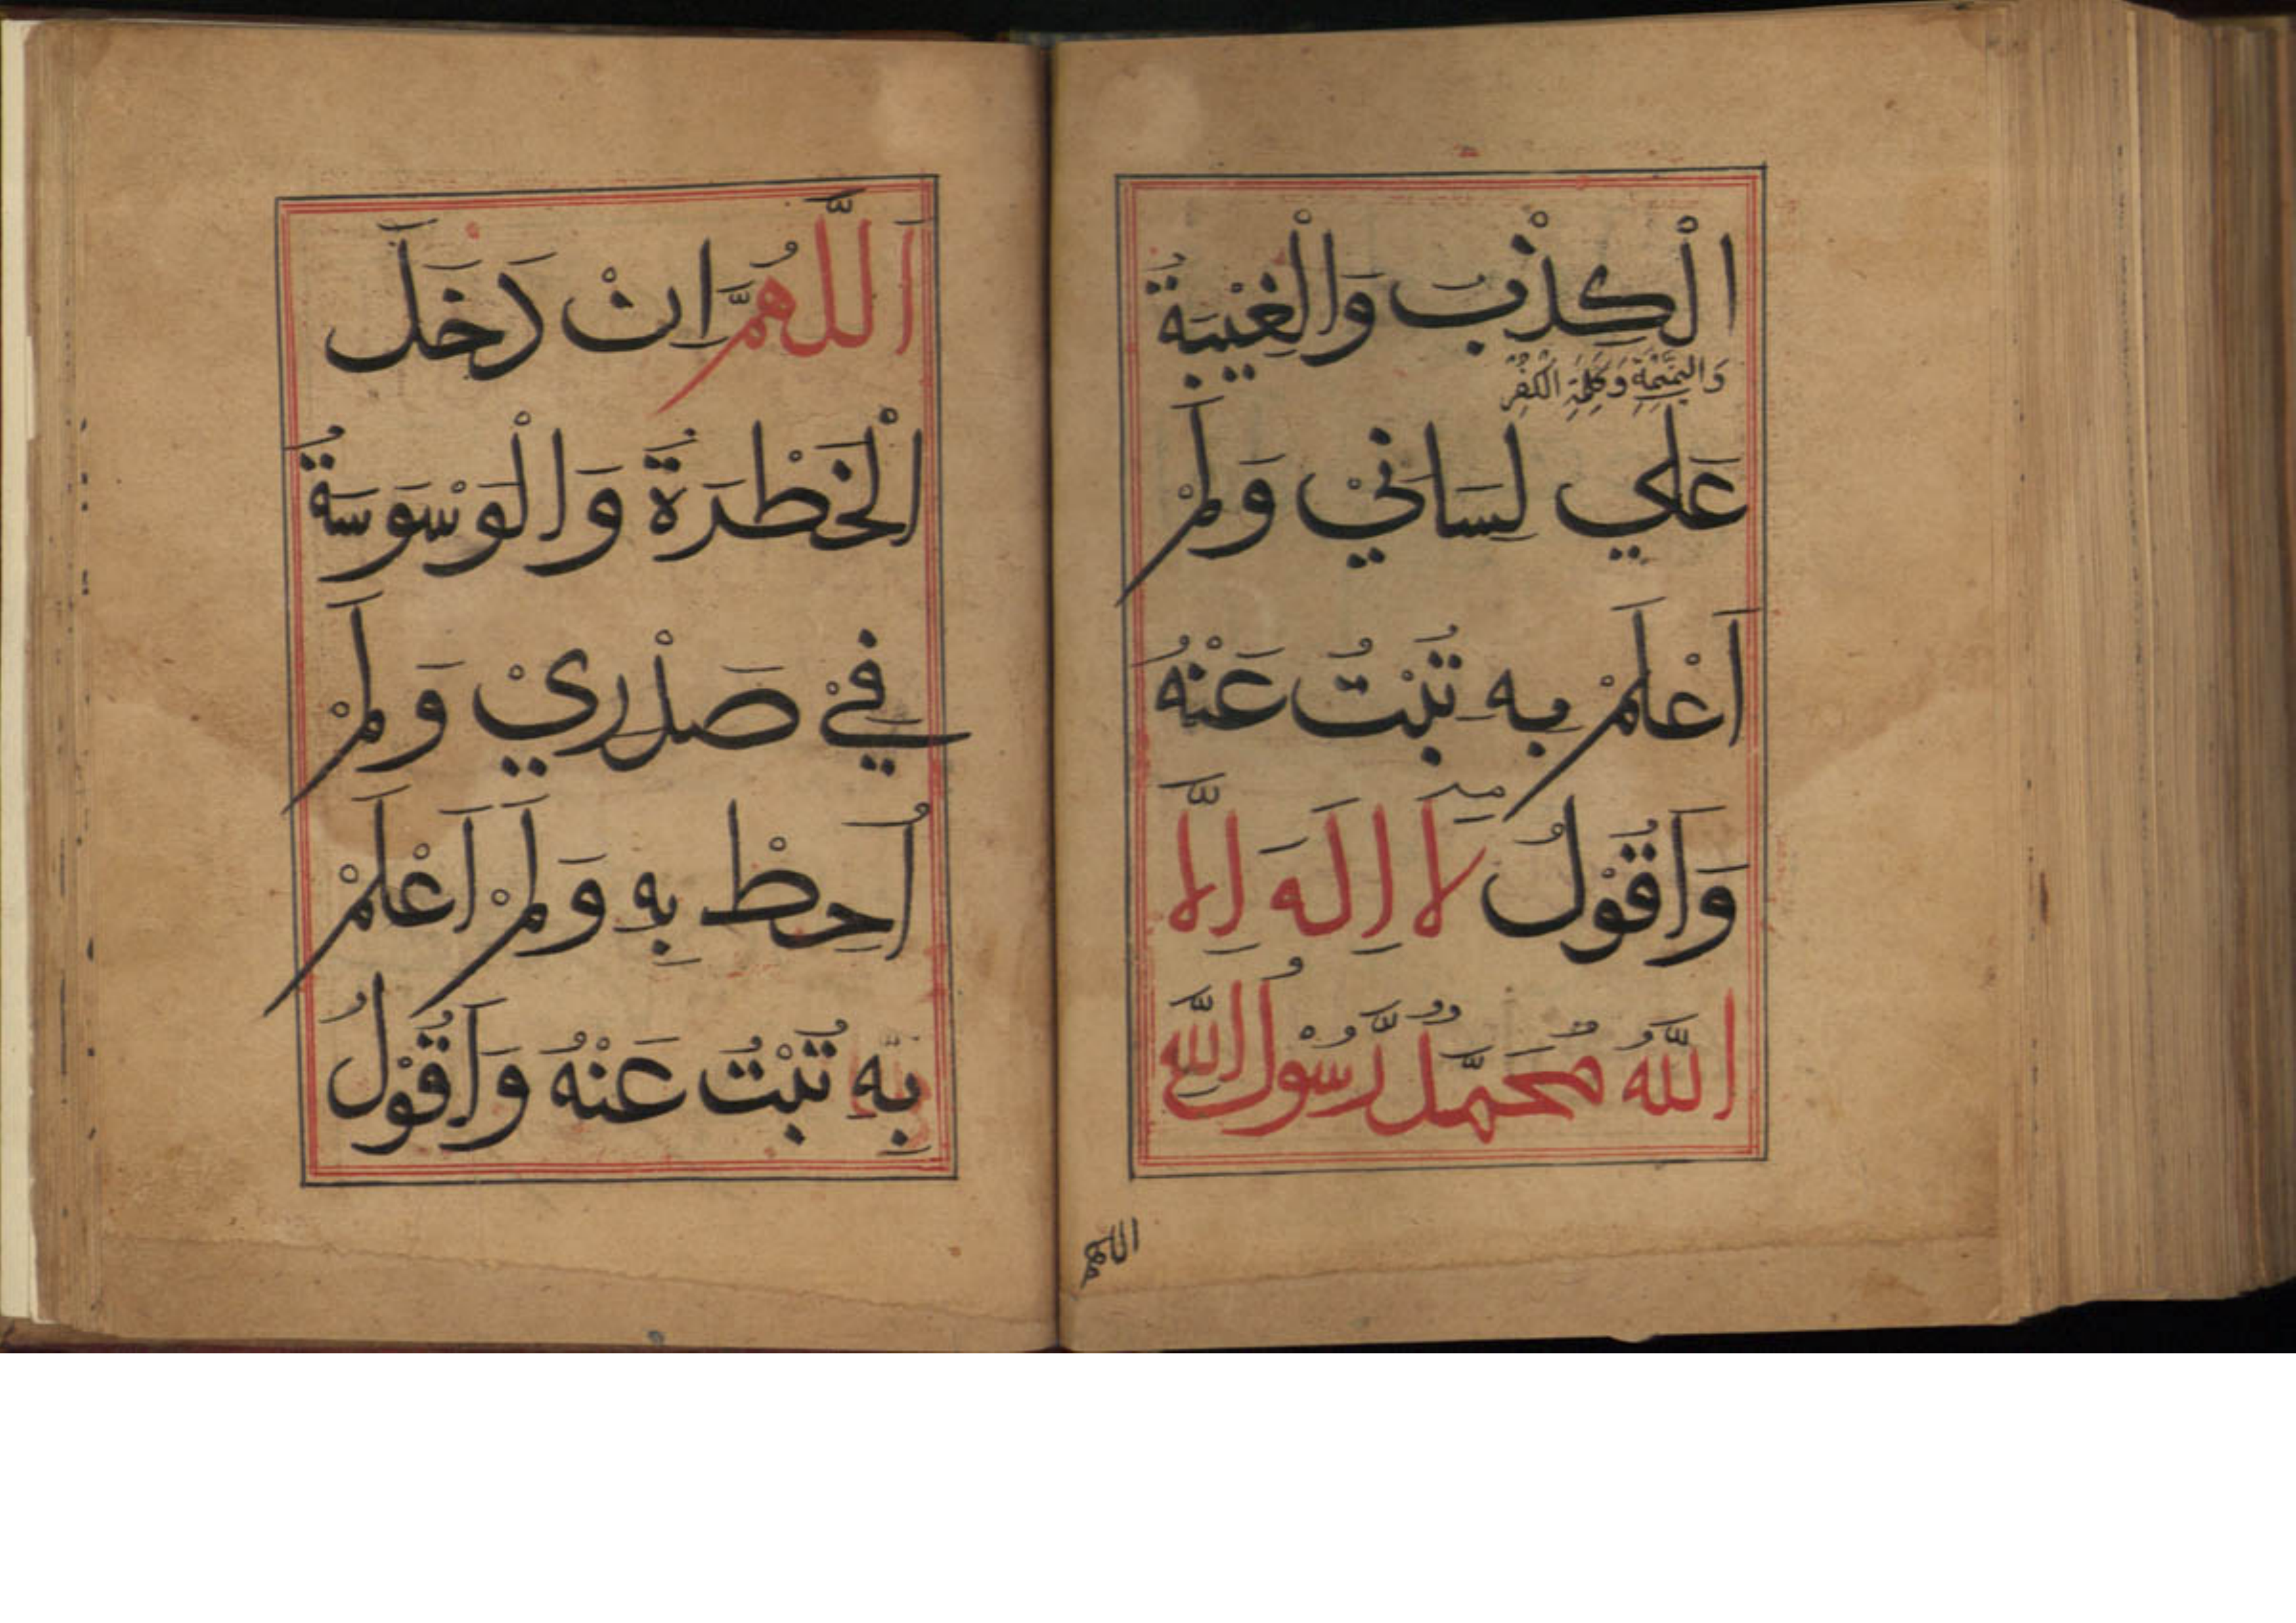 الْكِذْبُ وَالْغِيْبَةُ
وَالنَّمِيْمَةُ وَكَلِمَةُ الْكُفْرِ
عَلَي لِسَانِيْ وَلَمْ
اَعْلَمْ بِه تُبْتُ عَنْهُ
وَاَقُوْلُ لَا اِلَهَ اِلَّا
اللَّهُ مُحَمَّدٌ رَّسُوْلُ اللَّهِ
اللهم
اَللَّهُمَّ اِنْ دَخَلَ
الْخَطْرَةُ وَالْوَسْوَسَةُ
فِيْ صَدْرِيْ وَلَمْ
اُحِطْ بِهِ وَلَمْ اَعْلَمْ
بِهِ تُبْتُ عَنْهُ وَاَقُوْلُ